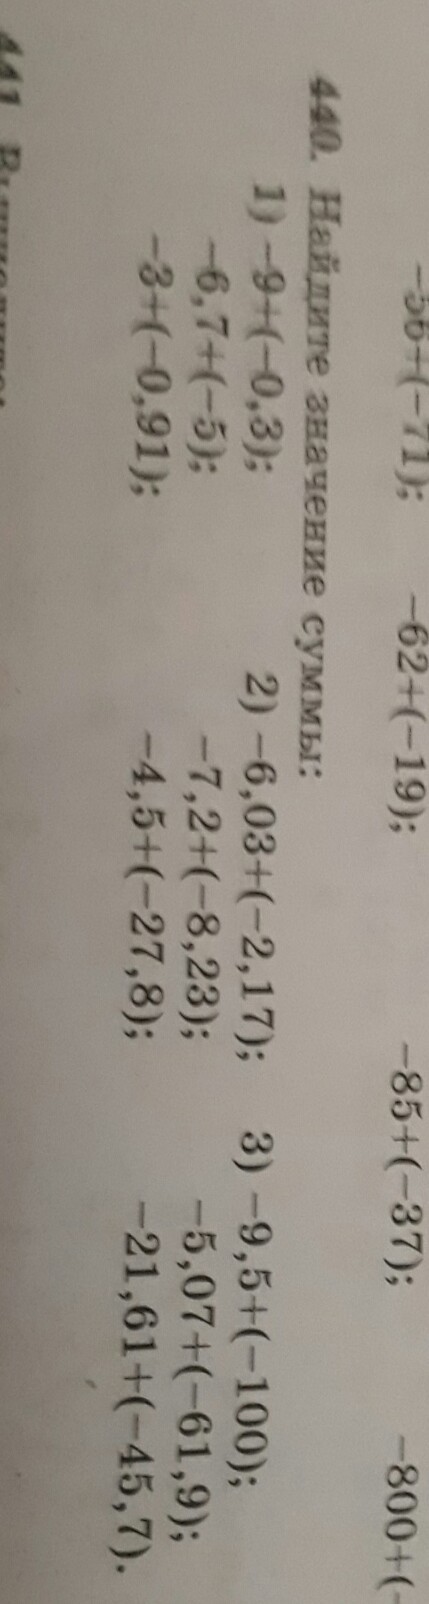 −56+(−71); −62+(−19); −85+(−37); −800+(−
440. Найдите значение суммы:
1) −9+(−0,3); 2) −6,03+(−2,17); 3) −9,5+(−100);
−6,7+(−5); −7,2+(−8,23); −5,07+(−61,9);
−3+(−0,91); −4,5+(−27,8); −21,61+(−45,7).
441.